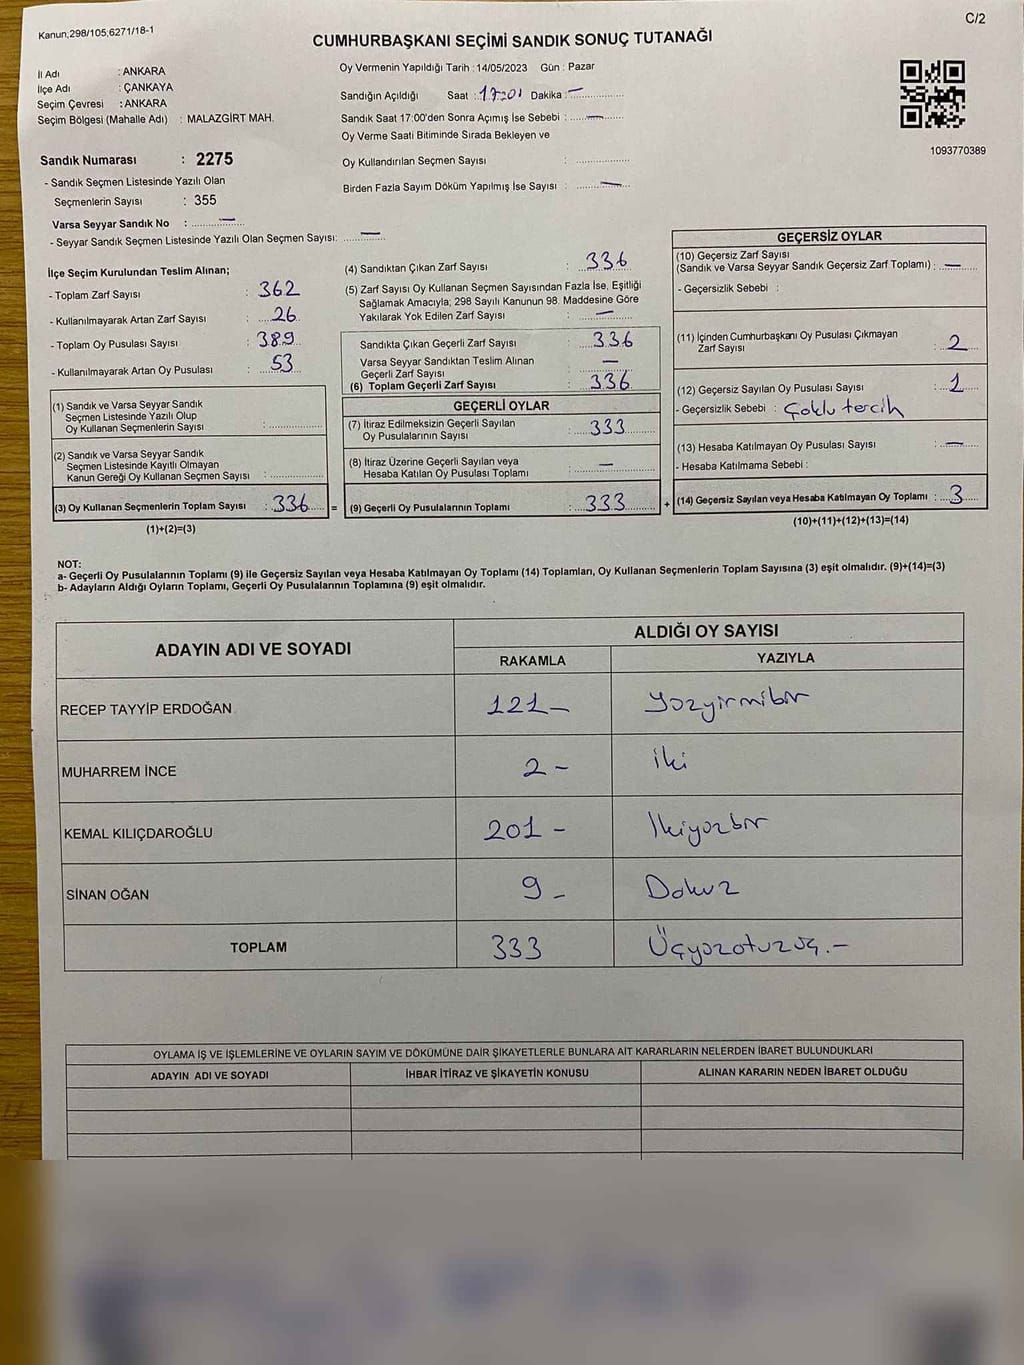 Kanun;298/105;6271/18-1
C/2
CUMHURBAŞKANI SEÇİMİ SANDIK SONUÇ TUTANAĞI
İl Adı : ANKARA
İlçe Adı : ÇANKAYA
Seçim Çevresi : ANKARA
Seçim Bölgesi (Mahalle Adı) : MALAZGİRT MAH.
Oy Vermenin Yapıldığı Tarih : 14/05/2023 Gün : Pazar
Sandığın Açıldığı Saat : 17:01 Dakika : —
Sandık Saat 17:00'den Sonra Açımış İse Sebebi : —
Oy Verme Saati Bitiminde Sırada Bekleyen ve
Oy Kullandırılan Seçmen Sayısı :
Birden Fazla Sayım Döküm Yapılmış İse Sayısı : —
1093770389
Sandık Numarası : 2275
- Sandık Seçmen Listesinde Yazılı Olan
Seçmenlerin Sayısı : 355
Varsa Seyyar Sandık No : —
- Seyyar Sandık Seçmen Listesinde Yazılı Olan Seçmen Sayısı: —
İlçe Seçim Kurulundan Teslim Alınan;
- Toplam Zarf Sayısı : 362
- Kullanılmayarak Artan Zarf Sayısı : 26
- Toplam Oy Pusulası Sayısı : 389
- Kullanılmayarak Artan Oy Pusulası : 53
(1) Sandık ve Varsa Seyyar Sandık
Seçmen Listesinde Yazılı Olup
Oy Kullanan Seçmenlerin Sayısı :
(2) Sandık ve Varsa Seyyar Sandık
Seçmen Listesinde Kayıtlı Olmayan
Kanun Gereği Oy Kullanan Seçmen Sayısı :
(3) Oy Kullanan Seçmenlerin Toplam Sayısı : 336 =
(1)+(2)=(3)
(4) Sandıktan Çıkan Zarf Sayısı : 336
(5) Zarf Sayısı Oy Kullanan Seçmen Sayısından Fazla İse, Eşitliği
Sağlamak Amacıyla; 298 Sayılı Kanunun 98. Maddesine Göre
Yakılarak Yok Edilen Zarf Sayısı : —
Sandıkta Çıkan Geçerli Zarf Sayısı : 336
Varsa Seyyar Sandıktan Teslim Alınan
Geçerli Zarf Sayısı : —
(6) Toplam Geçerli Zarf Sayısı : 336
GEÇERLİ OYLAR
(7) İtiraz Edilmeksizin Geçerli Sayılan
Oy Pusulalarının Sayısı : 333
(8) İtiraz Üzerine Geçerli Sayılan veya
Hesaba Katılan Oy Pusulası Toplamı : —
(9) Geçerli Oy Pusulalarının Toplamı : 333 +
GEÇERSİZ OYLAR
(10) Geçersiz Zarf Sayısı
(Sandık ve Varsa Seyyar Sandık Geçersiz Zarf Toplamı) : —
- Geçersizlik Sebebi :
(11) İçinden Cumhurbaşkanı Oy Pusulası Çıkmayan
Zarf Sayısı : 2
(12) Geçersiz Sayılan Oy Pusulası Sayısı : 1
- Geçersizlik Sebebi : Çoklu tercih
(13) Hesaba Katılmayan Oy Pusulası Sayısı : —
- Hesaba Katılmama Sebebi :
(14) Geçersiz Sayılan veya Hesaba Katılmayan Oy Toplamı : 3
(10)+(11)+(12)+(13)=(14)
NOT:
a- Geçerli Oy Pusulalarının Toplamı (9) ile Geçersiz Sayılan veya Hesaba Katılmayan Oy Toplamı (14) Toplamları, Oy Kullanan Seçmenlerin Toplam Sayısına (3) eşit olmalıdır. (9)+(14)=(3)
b- Adayların Aldığı Oyların Toplamı, Geçerli Oy Pusulalarının Toplamına (9) eşit olmalıdır.
ADAYIN ADI VE SOYADI
ALDIĞI OY SAYISI
RAKAMLA YAZIYLA
RECEP TAYYİP ERDOĞAN 121— Yüzyirmibir
MUHARREM İNCE 2 – iki
KEMAL KILIÇDAROĞLU 201 – İkiyüzbir
SİNAN OĞAN 9 – Dokuz
TOPLAM 333 Üçyüzotuzüç.–
OYLAMA İŞ VE İŞLEMLERİNE VE OYLARIN SAYIM VE DÖKÜMÜNE DAİR ŞİKAYETLERLE BUNLARA AİT KARARLARIN NELERDEN İBARET BULUNDUKLARI
ADAYIN ADI VE SOYADI İHBAR İTİRAZ VE ŞİKAYETİN KONUSU ALINAN KARARIN NEDEN İBARET OLDUĞU